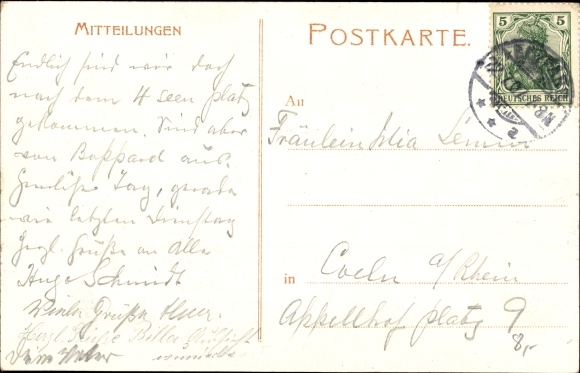 MITTEILUNGEN
Endlich sind wir doch
nach dem 4 seen platz
gekommen. Sind aber
von Boppard aus.
Herrlicher Tag, gerade
wie letzten Dienstag
Herzl. Grüße an Alle
Hugo Schmidt
Viele Grüße
Herzl. Grüße
POSTKARTE.
5 5
DEUTSCHES REICH
An
Fräulein
in Coeln a/Rhein
Appellhof platz 9